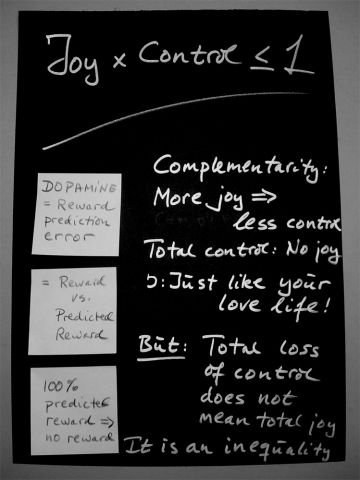 Joy × Control ≤ 1
DOPAMINE
= Reward
prediction
error
= Reward
vs.
Predicted
Reward
100%
predicted
reward ⇒
no reward
Complementarity:
More joy ⇒
less control
Total control: No joy
Just like your
love life!
But: Total loss
of control
does not
mean total joy
It is an inequality